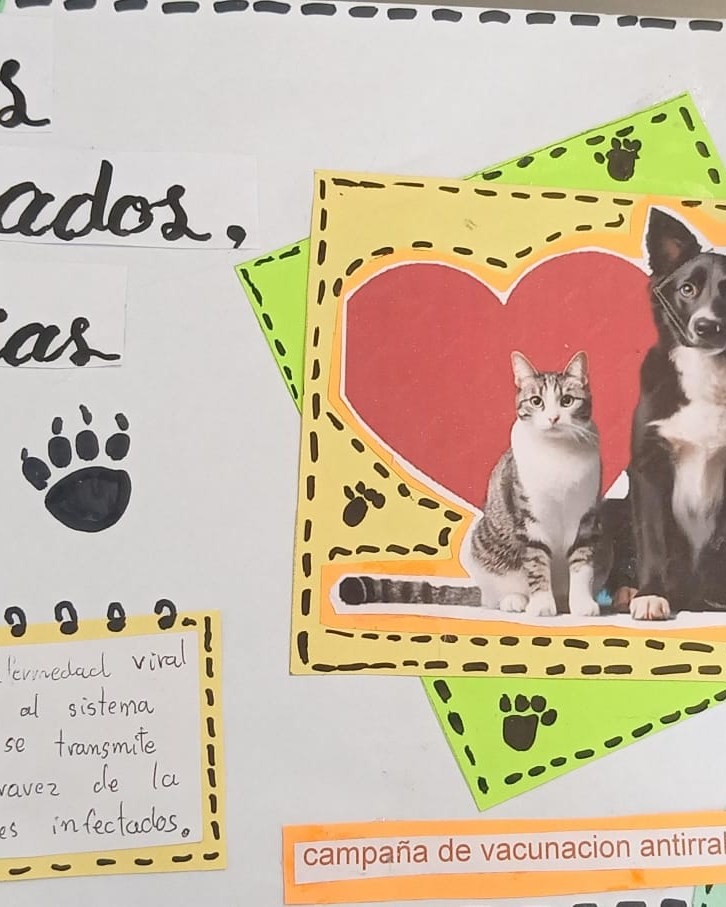 s
ados,
ias
fermedad viral
al sistema
se transmite
ravez de la
es infectados.
campaña de vacunacion antirrab